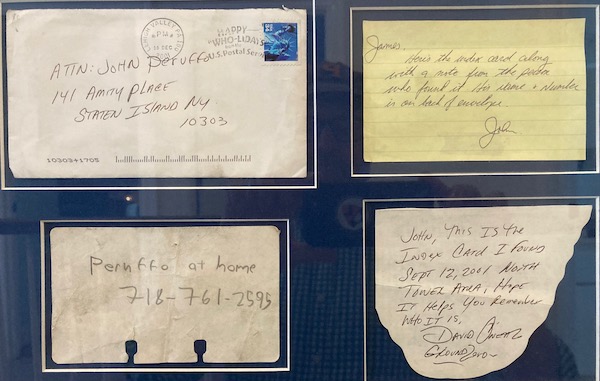 LEHIGH VALLEY PA
HAPPY
WHO-LIDAYS
U.S. Postal Serv
ATTN: JOHN PERUFFO
141 AMITY PLACE
STATEN ISLAND NY.
10303
10303+1705
James,
Here's the index card along
with a note from the person
who found it. His name + Number
is on back of envelope.
John
Peruffo at home
718-761-2595
JOHN, THIS IS THE
INDEX CARD I FOUND
SEPT 12, 2001 NORTH
TOWER AREA, HOPE
IT HELPS YOU REMEMBER
WHO IT IS,
DAVID
GROUND ZERO